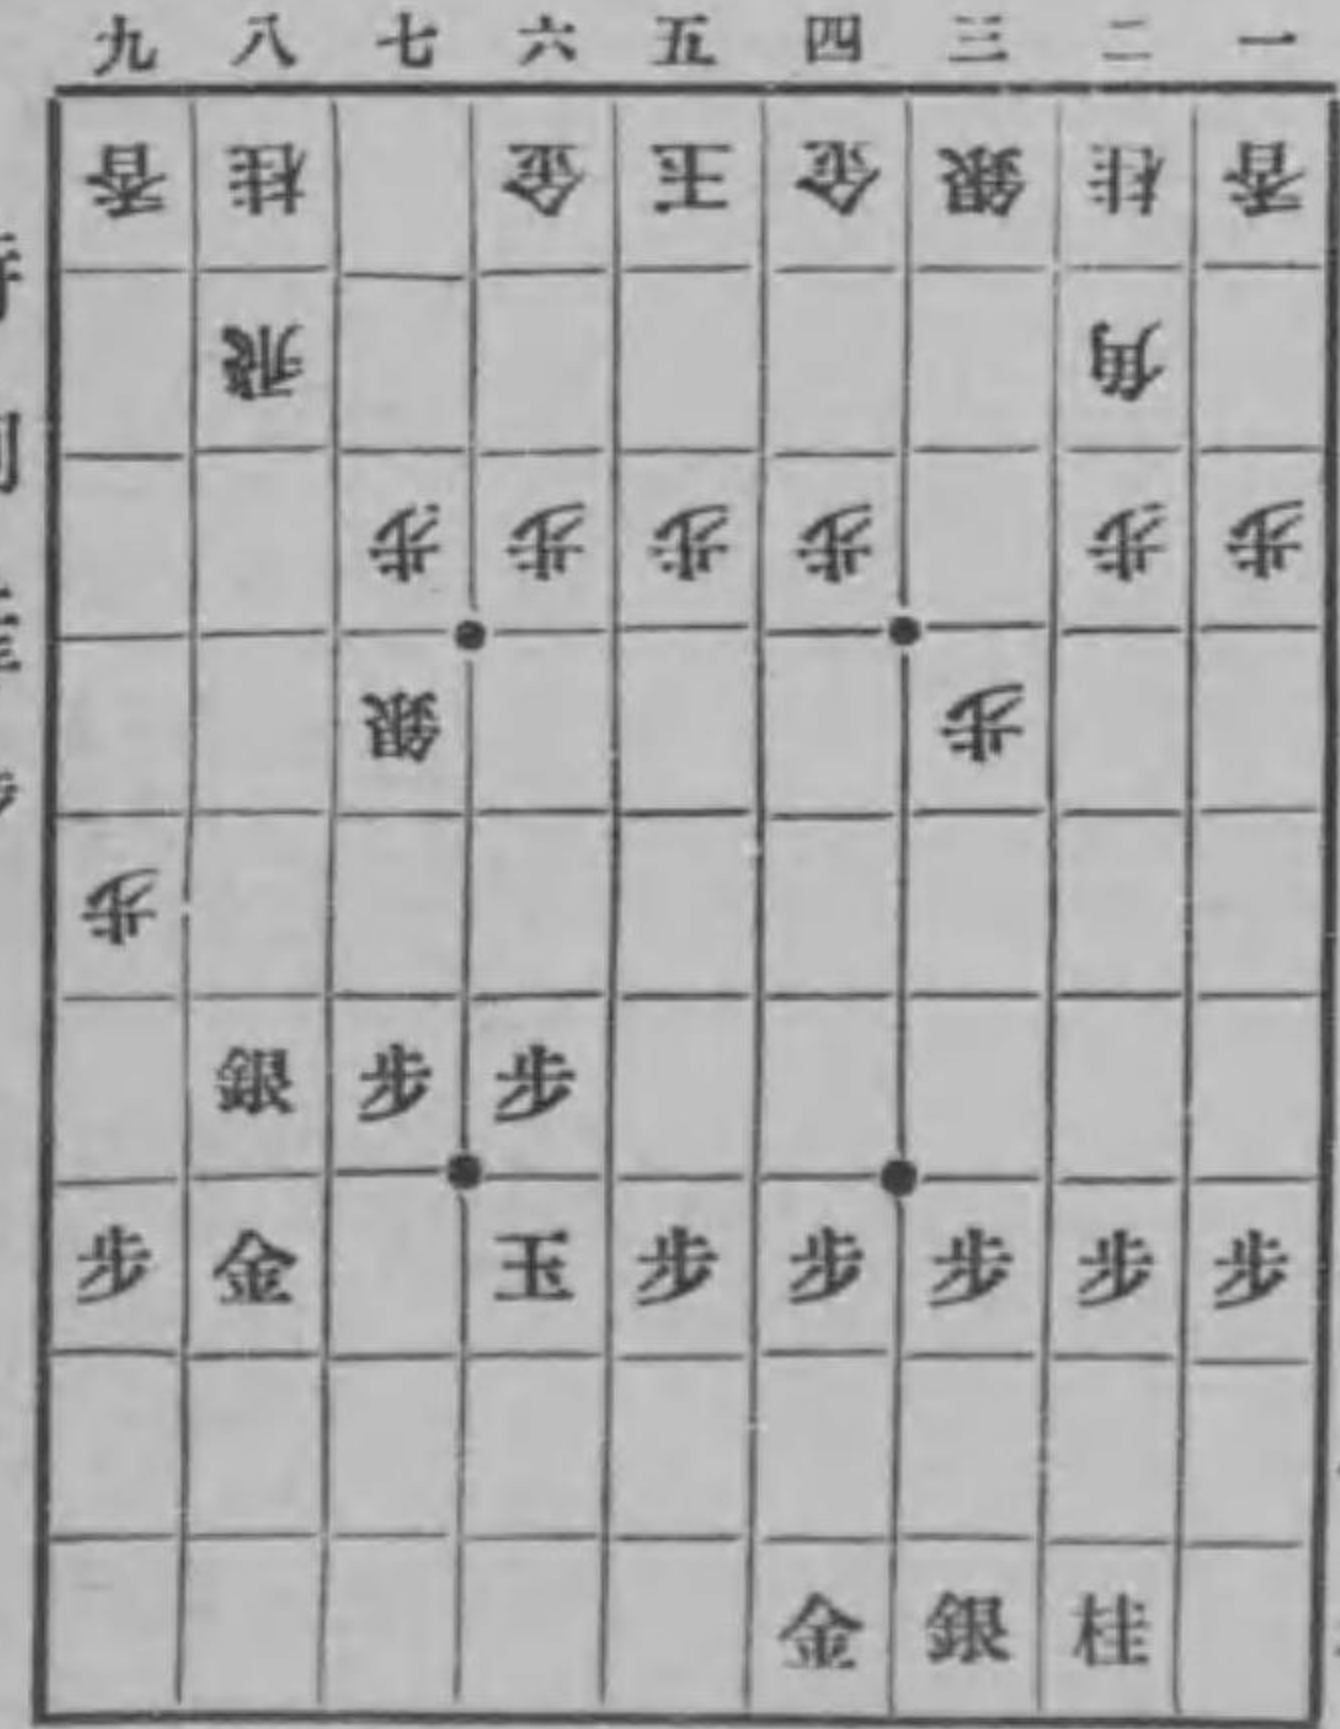 九 八 七 六 五 四 三 二 一
香 桂 金 玉 金 銀 桂 香
飛 角
歩 歩 歩 歩 歩 歩
銀 歩
歩
銀 歩 歩
歩 金 玉 歩 歩 歩 歩 歩
金 銀 桂